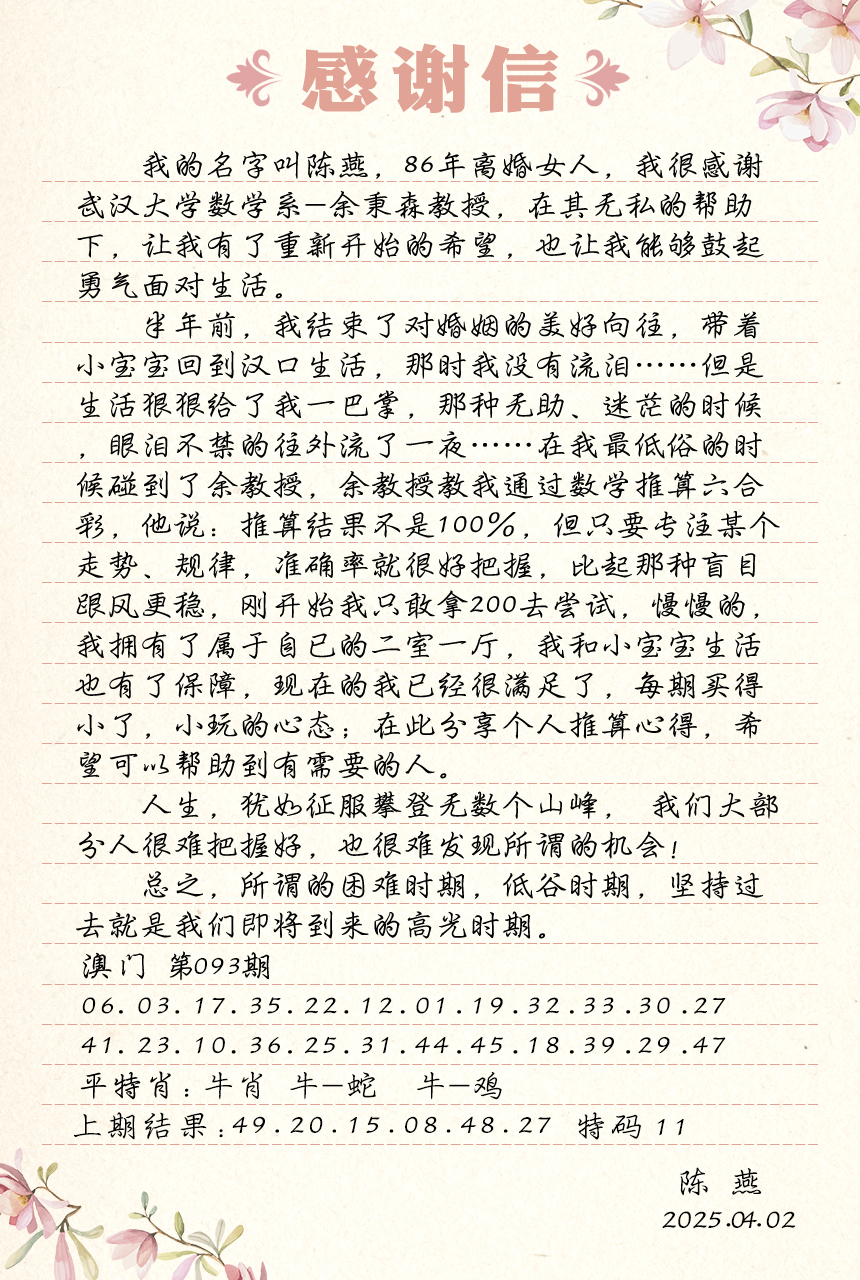 感谢信
我的名字叫陈燕，86年离婚女人，我很感谢
武汉大学数学系—余秉森教授，在其无私的帮助
下，让我有了重新开始的希望，也让我能够鼓起
勇气面对生活。
半年前，我结束了对婚姻的美好向往，带着
小宝宝回到汉口生活，那时我没有流泪……但是
生活狠狠给了我一巴掌，那种无助、迷茫的时候
，眼泪不禁的往外流了一夜……在我最低俗的时
候碰到了余教授，余教授教我通过数学推算六合
彩，他说：推算结果不是100%，但只要专注某个
走势、规律，准确率就很好把握，比起那种盲目
跟风更稳，刚开始我只敢拿200去尝试，慢慢的，
我拥有了属于自已的二室一厅，我和小宝宝生活
也有了保障，现在的我已经很满足了，每期买得
小了，小玩的心态；在此分享个人推算心得，希
望可以帮助到有需要的人。
人生，犹如征服攀登无数个山峰， 我们大部
分人很难把握好，也很难发现所谓的机会！
总之，所谓的困难时期，低谷时期，坚持过
去就是我们即将到来的高光时期。
澳门 第093期
06.03.17.35.22.12.01.19.32.33.30.27
41.23.10.36.25.31.44.45.18.39.29.47
平特肖：牛肖 牛—蛇 牛—鸡
上期结果：49.20.15.08.48.27 特码 11
陈 燕
2025.04.02